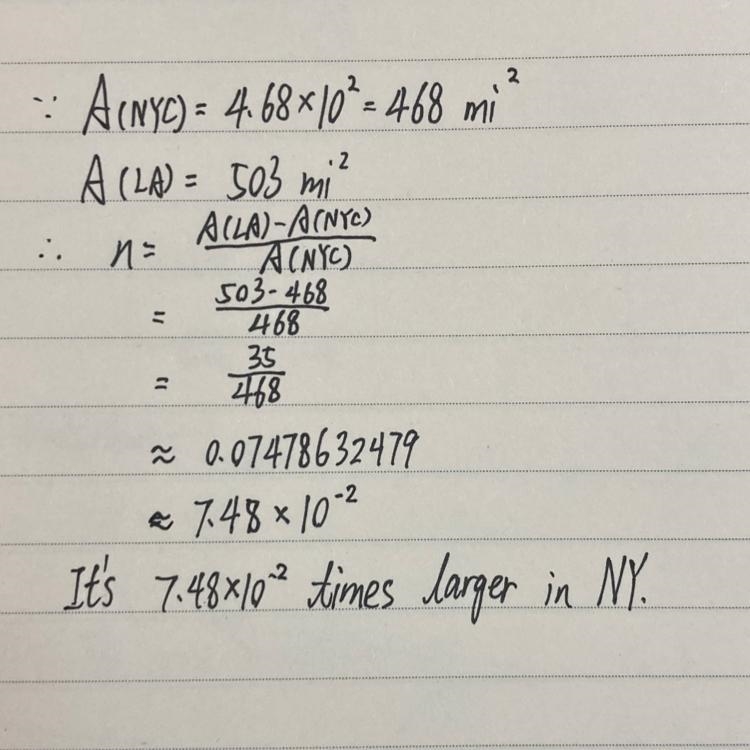 ∵ A(NYC) = 4.68×10² = 468 mi²
A(LA) = 503 mi²
∴ n = A(LA)-A(NYC) / A(NYC)
= 503-468 / 468
= 35 / 468
≈ 0.07478632479
≈ 7.48×10⁻²
It's 7.48×10⁻² times larger in NY.